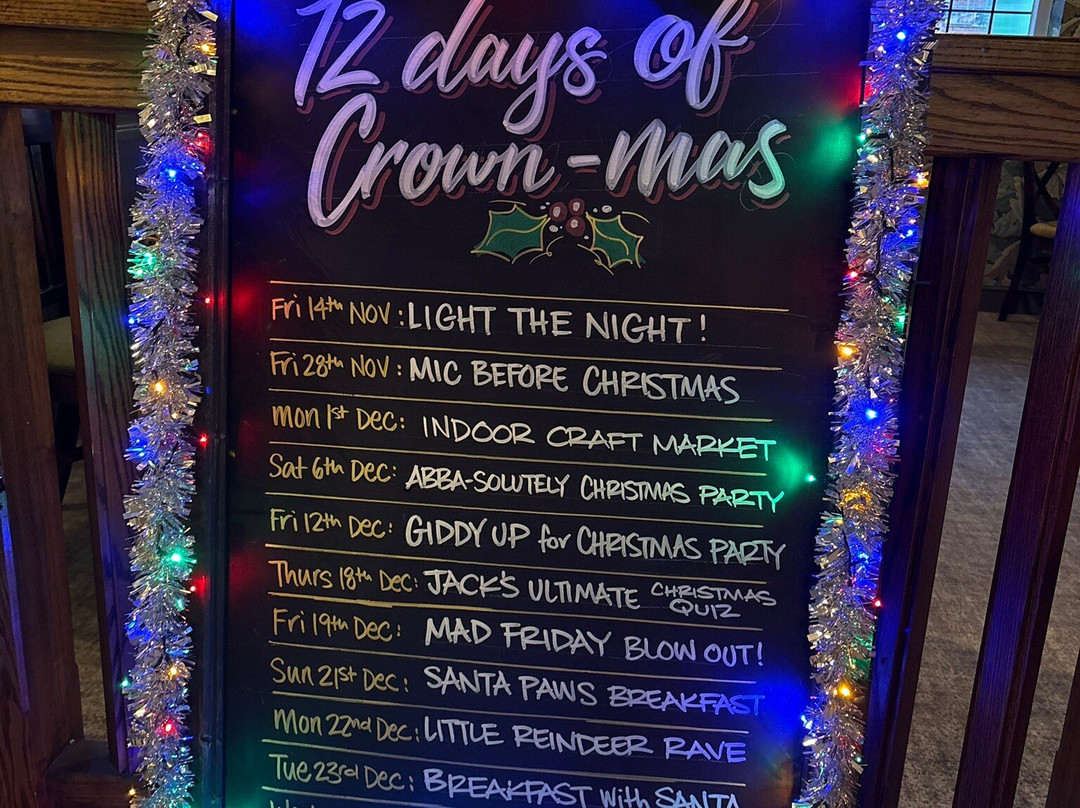 12 days of
Crown-mas
Fri 14th NOV: LIGHT THE NIGHT!
Fri 28th NOV: MIC BEFORE CHRISTMAS
Mon 1st Dec: INDOOR CRAFT MARKET
Sat 6th Dec: ABBA-SOLUTELY CHRISTMAS PARTY
Fri 12th Dec: GIDDY UP for CHRISTMAS PARTY
Thurs 18th Dec: JACK'S ULTIMATE CHRISTMAS QUIZ
Fri 19th Dec: MAD FRIDAY BLOW OUT!
Sun 21st Dec: SANTA PAWS BREAKFAST
Mon 22nd Dec: LITTLE REINDEER RAVE
Tue 23rd Dec: BREAKFAST with SANTA